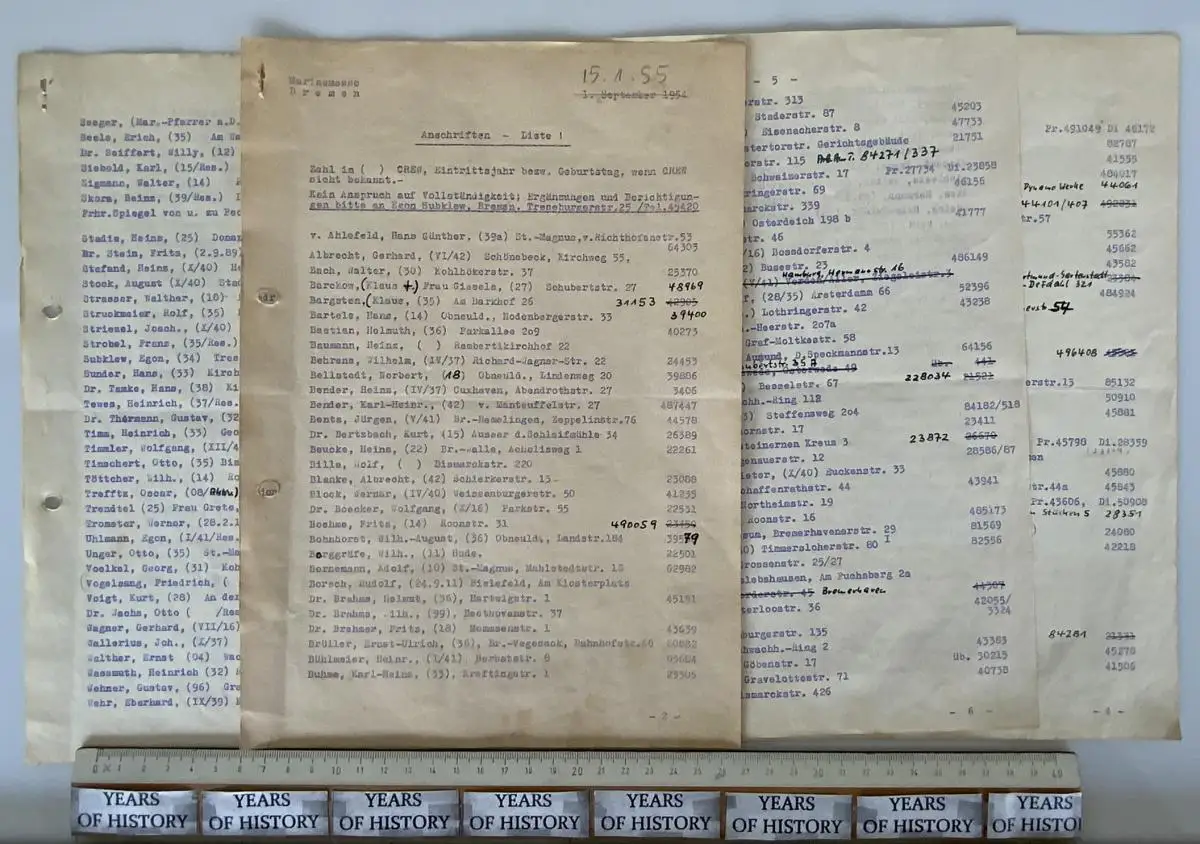 Seeger, (Mar.-Pfarrer a.D.
Seele, Erich, (35) Am We
Dr. Seiffert, Willy, (12)
Siebold, Karl, (15/Res.)
Sigmann, Walter, (14)
Skora, Heins, (39/Res.)
Frhr.Spiegel von u. zu Pec
Stadie, Heinz, (25) Donan
Dr. Stein, Fritz, (2.9.89)
Stefand, Heins, (X/40) H
Stock, August (X/40) Sta
Strasser, Walther, (10)
Struckmeier, Rolf, (35)
Striezel, Joach., (X/40)
Strobel, Franz, (35/Res.)
Subklew, Egon, (34) Tres
Sunder, Hans, (33) Kirch
Dr. Tamke, Hans, (38) Ki
Tewes, Heinrich, (37/Res.
Dr. Thörmann, Gustav, (32
Timm, Heinrich, (33) Geo
Timmler, Wolfgang, (XII/4
Timschert, Otto, (35) Bis
Töttcher, Wilh., (14) R
Trefftz, Oscar, (08/
Trendtel (25) Frau Grete,
Trometer, Werner, (28.2.1
Uhlmann, Egon, (I/41/Res.
Unger, Otto, (35) St.-Ma
Voelkel, Georg, (31) Koh
Vogelsang, Friedrich, (
Voigt, Kurt, (28) An der
Dr. Wachs, Otto ( /Res
Wagner, Gerhard, (VII/16)
Wallerius, Joh., (X/37)
Walther, Ernst (04) Wac
Wassmuth, Heinrich (32)
Wehner, Gustav, (96) Gra
Wehr, Eberhard, (IX/39)
Marinemesse
Bremen
15.1.55
1. September 1954
Anschriften - Liste !
Zahl in ( ) CREW, Eintrittsjahr bezw. Geburtstag, wenn CREW
nicht bekannt.-
Kein Anspruch auf Vollständigkeit; Ergänzungen und Berichtigun-
gen bitte an Egon Subklew, Bremen, Treseburgerstr.25 /Tel.45420
v. Ahlefeld, Hans Günther, (39a) St.-Magnus,v.Richthofenstr.53
64303
Albrecht, Gerhard, (VI/42) Schönebeck, Kirchweg 55,
Bach, Walter, (30) Kohlhökerstr. 37 25370
Barckow, (Klaus +) Frau Gissela, (27) Schubertstr. 27 48969
Bargsten, (Klaus, (35) Am Barkhof 26 31153 42905
Bartels, Hans, (14) Obneuld., Rodenbergerstr. 33 39400
Bastian, Helmuth, (36) Parkallee 209 40273
Baumann, Heinz, ( ) Rembertikirchhof 22
Behrens, Wilhelm, (IV/37) Richard-Wagner-Str. 22 24453
Bellstedt, Norbert, (18) Obneuld., Lindenweg 20 39886
Bender, Heinz, (IV/37) Cuxhaven, Abendrothstr. 27 3406
Bender, Karl-Heinr., (42) v. Manteuffelstr. 27 487447
Bents, Jürgen, (V/41) Br.-Hemelingen, Zeppelinstr.76 44578
Dr. Bertzbach, Kurt, (15) Ausser d.Schleifmühle 34 26389
Beucke, Heinz, (22) Br.-Walle, Achelisweg 1 22261
Bille, Wolf, ( ) Bismarckstr. 220
Blanke, Albrecht, (42) Schierkerstr. 15 23088
Block, Werner, (IV/40) Weissenburgerstr. 50 41235
Dr. Boecker, Wolfgang, (X/16) Parkstr. 55 22531
Boehme, Fritz, (14) Roonstr. 31 490059 23459
Bohnhorst, Wilh.-August, (36) Obneuld., Landstr.184 39579
Borggräfe, Wilh., (11) Hude. 22501
Bornemann, Adolf, (10) St.-Magnus, Mahlstedtstr. 18 62982
Borsch, Rudolf, (24.9.11) Bielefeld, Am Klosterplatz
Dr. Brahms, Helmut, (36), Hartwigstr. 1 45151
Dr. Brahms, Wilh., (99), Beethovenstr. 37
Dr. Brehmer, Fritz, (18) Mommsenstr. 1 43639
Brüller, Ernst-Ulrich, (36), Br.-Vegesack, Bahnhofstr.40
Bühlmeier, Heinr., (I/41) Herbststr. 8
Buhme, Karl-Heinz, (33), Kreftingstr. 1
- 2 -
- 5 -
erstr. 313 45203
Staderstr. 87 47733
Eisenacherstr. 8 21751
stertorstr. Gerichtsgebäude
erstr. 115 84271/337
Schweizerstr. 17 Pr.27734 Di.23858
ringerstr. 69 46156
marckstr. 339
Osterdeich 198 b 41777
str. 46
/16) Bossdorferstr. 4 486149
2) Busestr. 23
Hamburg, Hermannstr. 16
, (28/35) Amsterdam 66 52396
.) Lothringerstr. 42 43238
.-Heerstr. 207a
Graf-Moltkestr. 58
Aumund, D.Speckmannstr.13 64156
Besselstr. 67 228034 21521
hh.-Ring 112
) Steffensweg 204 84182/518
ornstr. 17 23411
steinernen Kreus 3 23872 26570
genauerstr. 12 28586/87
ieter, (X/40) Euckenstr. 33
chaffenrathstr. 44 43941
Northeimstr. 19
Roonstr. 16 485173
sum, Bremerhavenerstr. 29 81569
0) Timmersloherstr. 80 82556
Grossenstr. 25/27
lebshausen, Am Fuchsberg 2a
orderstr. 45 Bremerhaven 44307
terloostr. 36 42055/
3324
burgerstr. 135
wachh.-Ring 2 43383
Göbenstr. 17 Üb. 30215
Gravelottestr. 71 40738
ismarckstr. 426
- 6 -
Pr.491049 Di 46172
82787
41555
484017
Dynamo Werke 44061
44101/407 492831
str.57
55362
45662
43582
484924
54
496408
erstr.13 85132
50910
45881
Pr.45798 Di.28359
en
45880
str.44a 45843
Pr.43606, Di.50908
28351
24080
42218
84281 21331
45278
41506
- 4 -
0 1 2 3 4 5 6 7 8 9 10 11 12 13 14 15 16 17 18 19 20 21 22 23 24 25 26 27 28 29 30 31 32 33 34 35 36 37 38 39 40
YEARS OF HISTORY YEARS OF HISTORY YEARS OF HISTORY YEARS OF HISTORY YEARS OF HISTORY YEARS OF HISTORY YEARS OF HISTORY YEARS OF HISTO